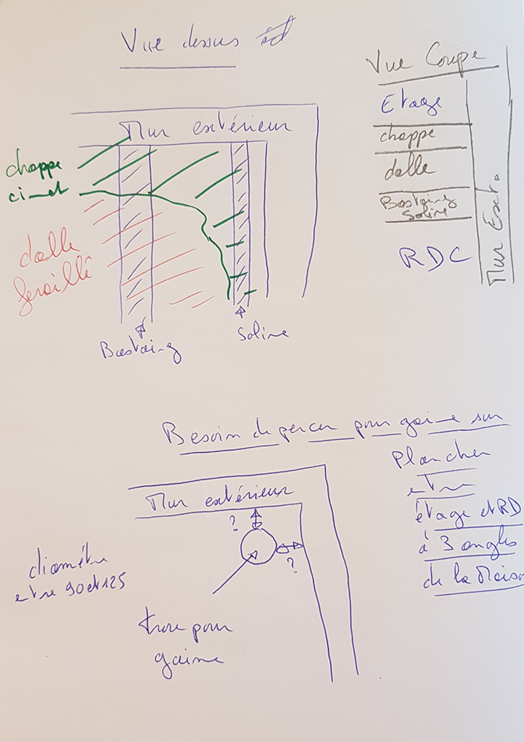 Vue dessus
Vue Coupe
Etage
chappe
dalle
Bastaing
Soline
RDC
Mur Ext.
Mur extérieur
chappe
ciment
dalle
feraillé
Bastaing
Soline
Besoin de percer pour gaine sur
plancher
entre
étage et RD
à 3 angles
de la Maison
Mur extérieur
?
?
diamétre
etre 90 et 125
trou pour
gaine